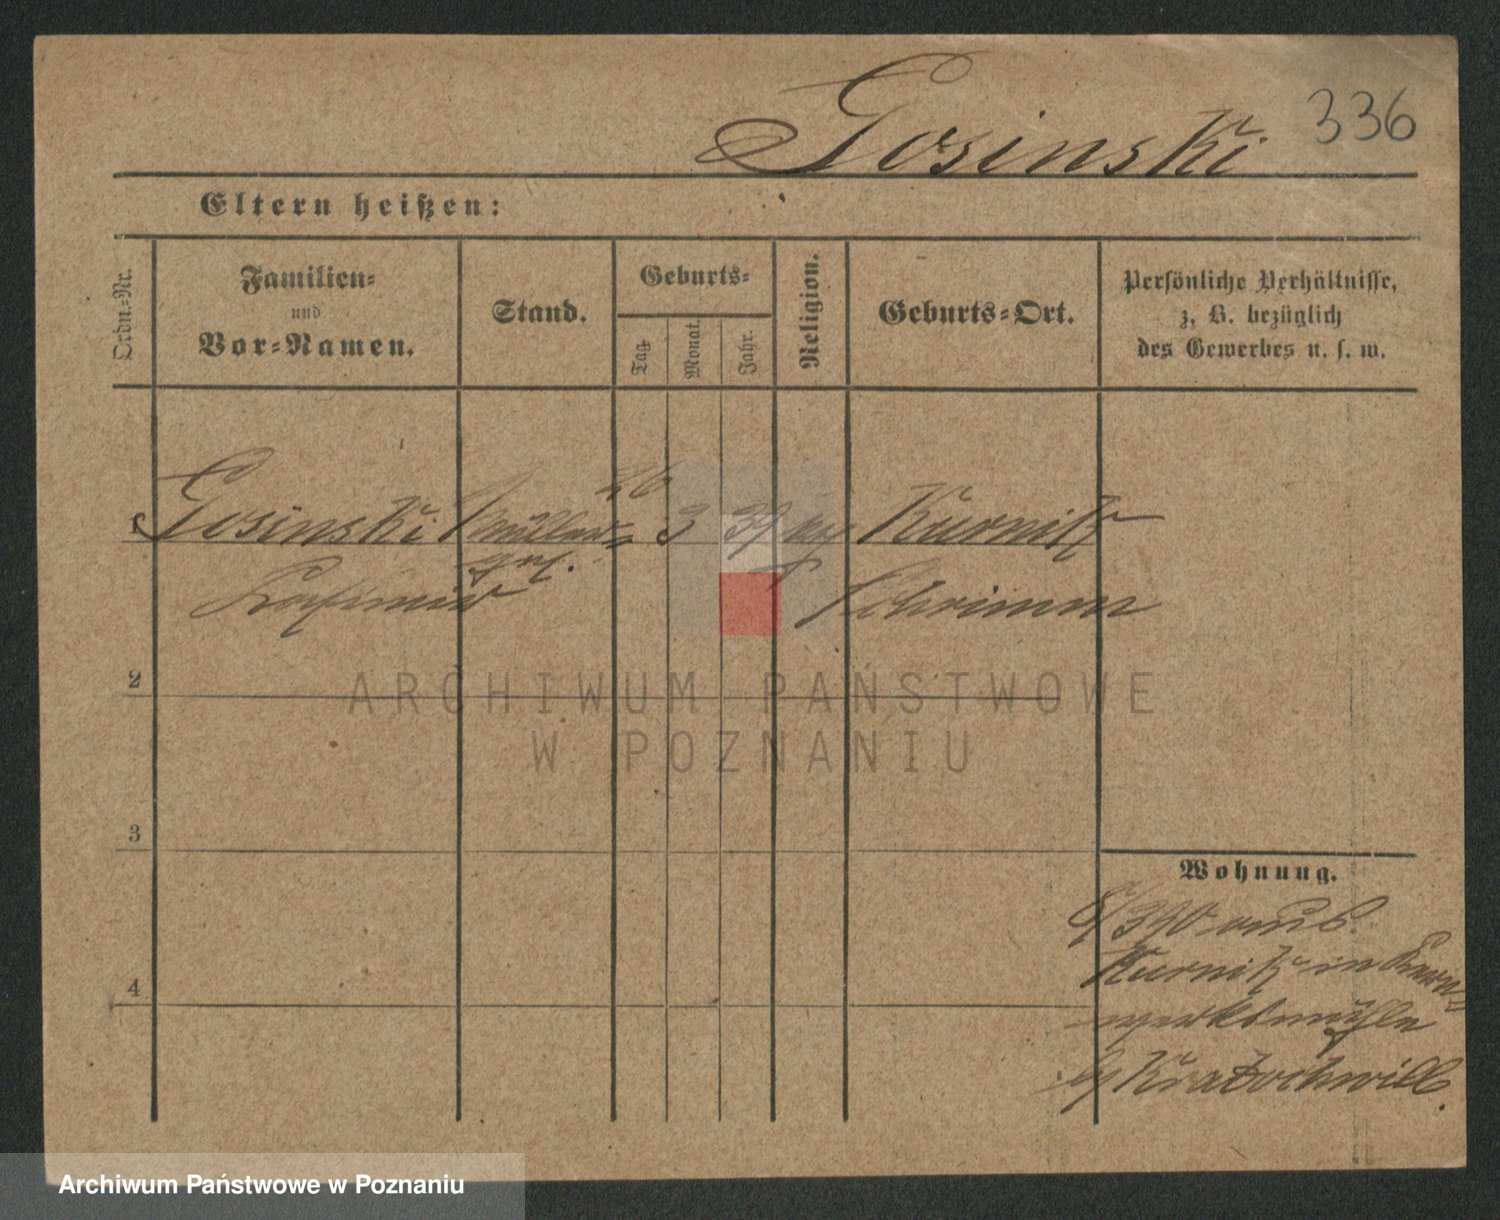 336
Gosinski
Eltern heißen:
Ordn.-Nr.
Familien-
und
Vor-Namen.
Stand.
Geburts-
Tag
Monat.
Jahr.
Religion.
Geburts-Ort.
Persönliche Verhältnisse,
z. B. bezüglich
des Gewerbes u. s. w.
1 Gosinski Müller- 26 3 39 Kurnik
Kasimir ges. Schrimm
2
3
4
Wohnung.
Kurnik in
mühle
b/ Kratochwill.
ARCHIWUM PAŃSTWOWE
W POZNANIU
Archiwum Państwowe w Poznaniu